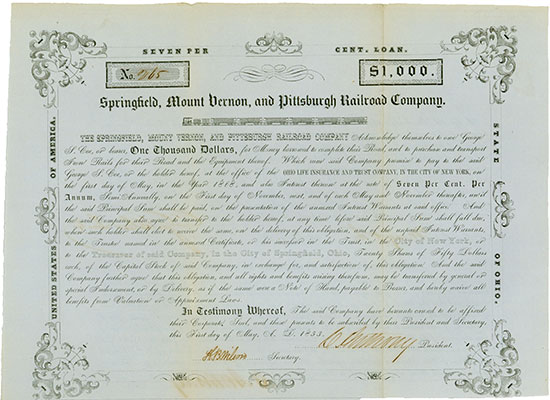 SEVEN PER CENT. LOAN.
No. 265
$1,000.
Springfield, Mount Vernon, and Pittsburgh Railroad Company.
UNITED STATES OF AMERICA.
STATE OF OHIO.
THE SPRINGFIELD, MOUNT VERNON, AND PITTSBURGH RAILROAD COMPANY Acknowledge themselves to owe George
S. Coe, or bearer, One Thousand Dollars, for Money borrowed to complete their Road, and to purchase and transport
Iron Rails for their Road and the Equipment thereof. Which sum said Company promise to pay to the said
George S. Coe, or the holder hereof, at the office of the OHIO LIFE INSURANCE AND TRUST COMPANY, IN THE CITY OF NEW YORK, on
the first day of May, in the Year 1868, and also Interest thereon at the rate of Seven Per Cent. Per
Annum, Semi-Annually, on the First days of November, next, and of each May and November thereafter, until
the said Principal Sum shall be paid on the presentation of the annexed Interest Warrants at said office. And
the said Company also agree to transfer to the holder hereof, at any time before said Principal Sum shall fall due,
when such holder shall elect to receive the same, on the delivery of this obligation, and of the unpaid Interest Warrants,
to the Trustee named in the annexed Certificate, or his successor in the Trust, in the City of New York, or
to the Treasurer of said Company, in the City of Springfield, Ohio, Twenty Shares of Fifty Dollars
each, of the Capital Stock of said Company, in exchange for, and satisfaction of, this obligation. And the said
Company further agree that this obligation, and all rights and benefits arising therefrom, may be transferred by general or
special Indorsement, or by Delivery, as if the same were a Note of Hand, payable to Bearer, and hereby waive all
benefit from Valuation or Appraisement Laws.
In Testimony Whereof, The said Company have hereunto caused to be affixed
their Corporate Seal, and these presents to be executed by their President and Secretary,
this First day of May, A. D. 1853.
President.
Secretary.